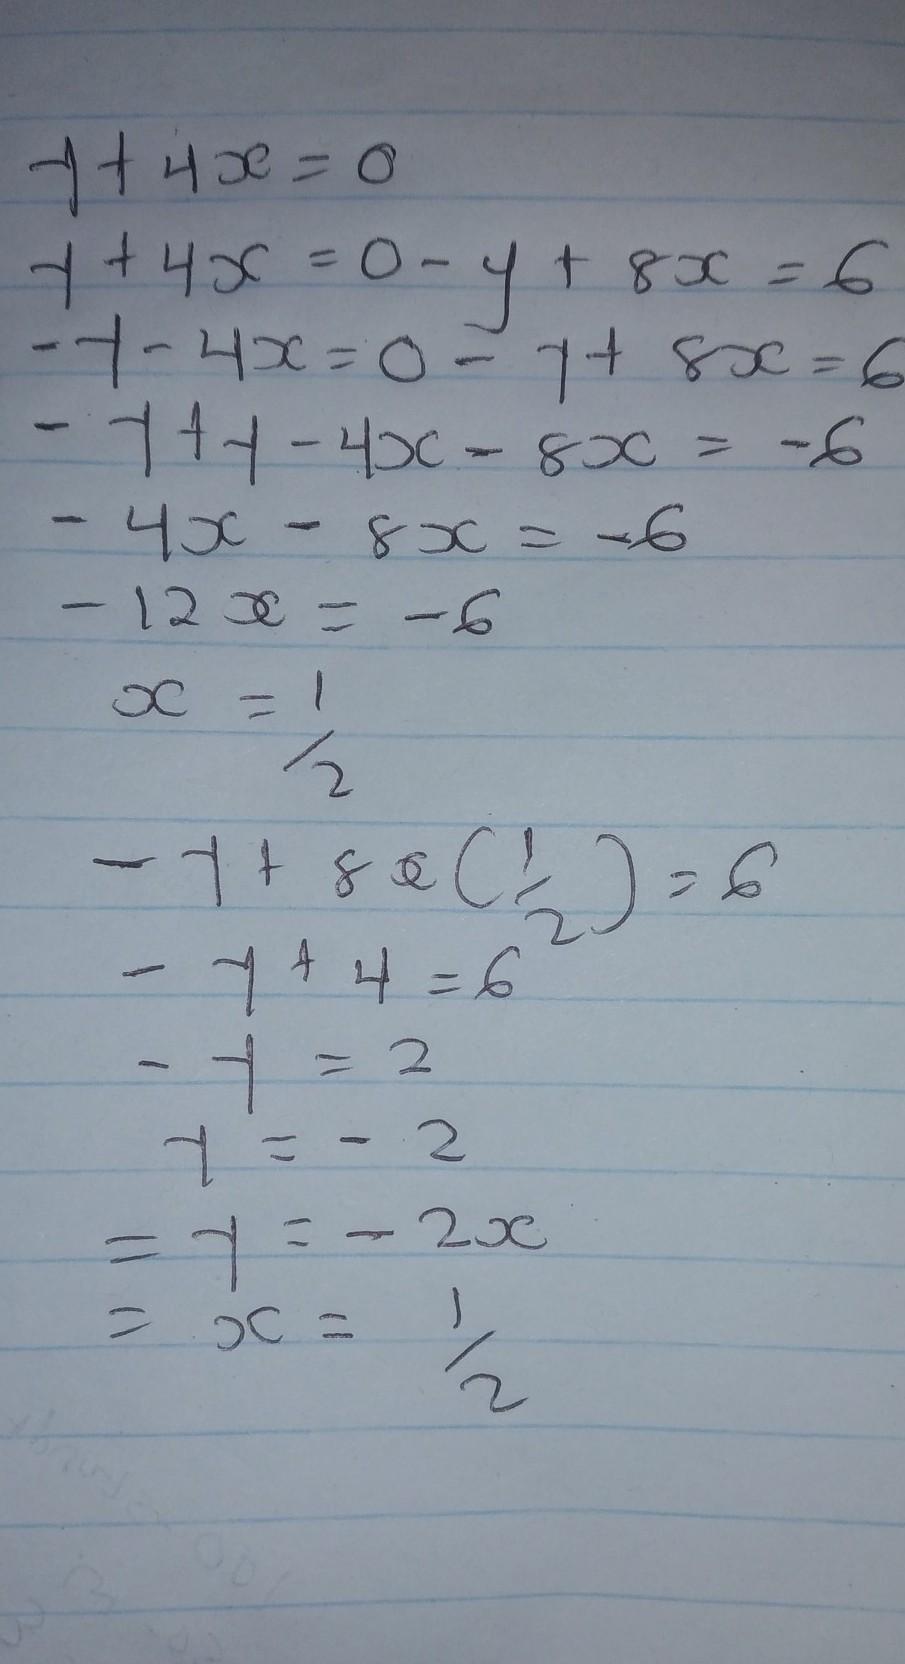 y + 4x = 0
y + 4x = 0 - y + 8x = 6
- y - 4x = 0 - y + 8x = 6
- y + y - 4x - 8x = -6
- 4x - 8x = -6
- 12x = -6
x = 1/2
- y + 8x (1/2) = 6
- y + 4 = 6
- y = 2
y = - 2
= y = - 2x
= x = 1/2